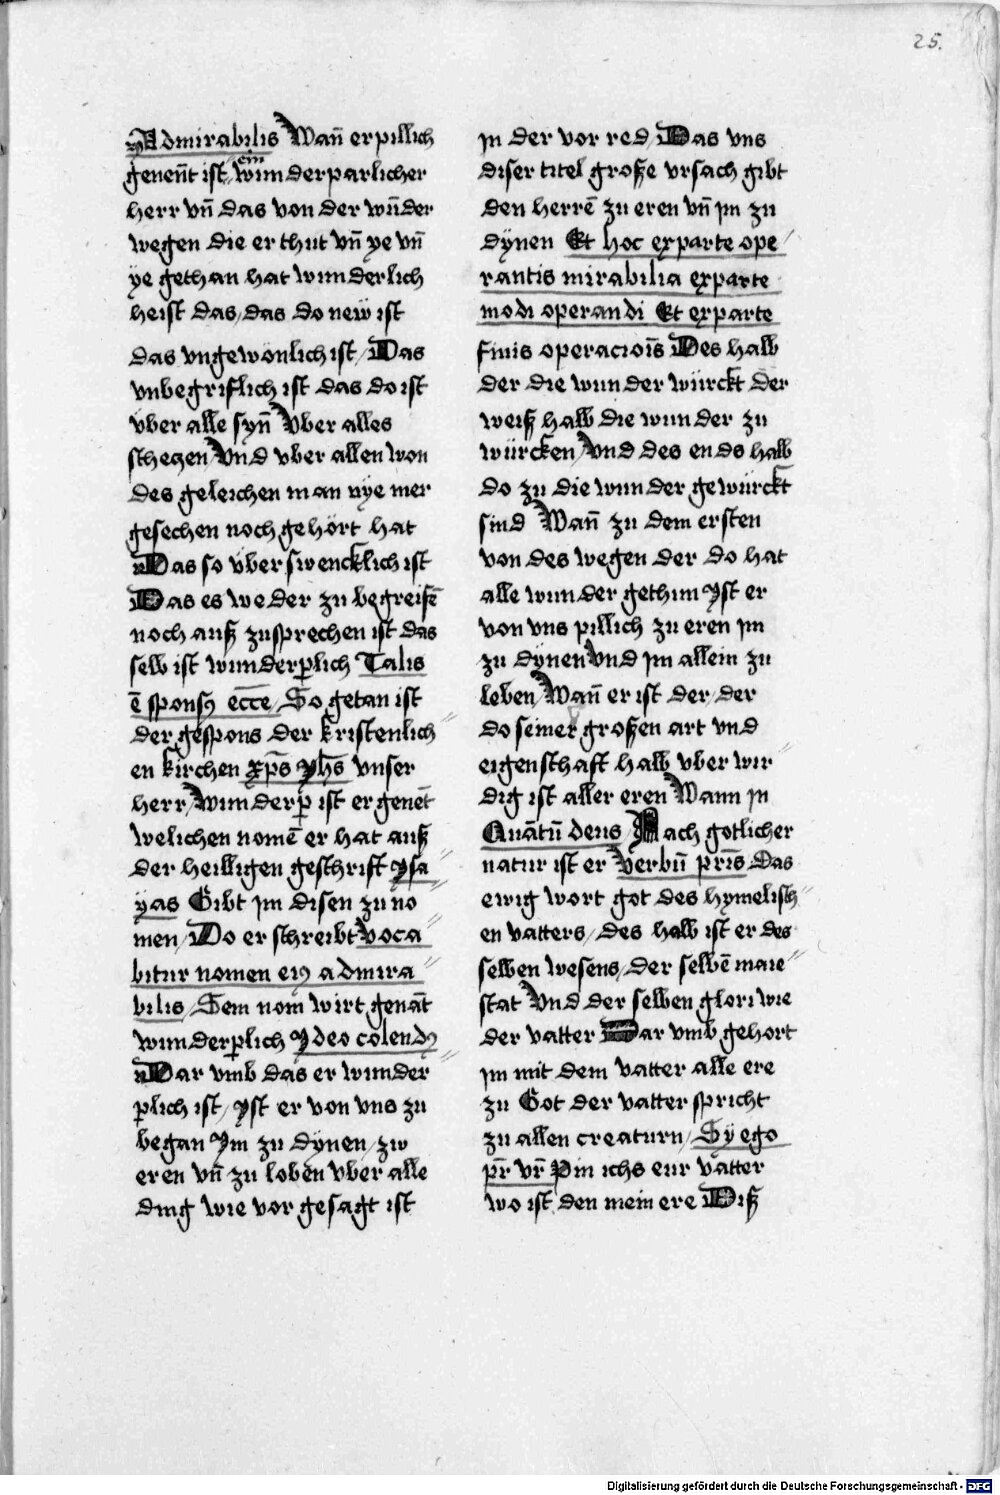 25.
Admirabilis Wan̄ er pillich
genen̄t ist / ein wunderparlicher
herr vn̄ das von der wūder
wegen die er thut vn̄ ye vn̄
ÿe gethan hat wunderlich
heist das / das do neẅ ist
das vngewönlich ist / Das
vnbegriflich ist das do ist
vber alle syn̄ Vber alles
schetzen Vnd vber allen won
des geleichen man nÿe mer
gesechen noch gehört hat
Das so vberswencklich ist
Das es weder zu begreifē
noch auß zusprechen ist das
selb ist wunderplich Talis
ē sponsꝰ ecce / So getan ist
der gespons der kristenlich
en kirchen xp̄s yh̄s vnser
herr / wunderp̱ ist er genēt
welichen nomē er hat auß
der heilligen geschrift ysa
ÿas Gibt jm disen zu no
men / Do er schreibt voca
bitur nomen eiꝰ admira
bilis / Sem nom̄ wirt genāt
wunderplich Ideo colendꝰ
Dar vmb das er wunder
plich ist / yst er von vns zu
began Im zu dÿnen / zw
eren vn̄ zu loben vber alle
ding wie vor gesagt ist
jn der vor red / Das vns
diser titel große vrsach gibt
den herrē zu eren vn̄ jm zu
dÿnen Et hoc ex parte ope
rantis mirabilia ex parte
modi operandi Et ex parte
finis operaciōis Des halb
der die wunder würckt der
weiß halb die wunder zu
würcken / Vnd des ends halb
do zu die wunder gewürckt
sind Wan̄ zu dem ersten
von des wegen der do hat
alle wunder gethun yst er
von vns pillich zu eren jm
zu dÿnen Vnd jm allein zu
leben / Wan̄ er ist der / der
do seiner großen art vnd
eigenschaft halb vber wir
dig ist aller eren Wann jn
Quātū deus / Nach gotlicher
natur ist er verbū pr̄is Das
ewig wort got des hymelisch
en vatters / des halb ist er des
selben wesens / der selbē maie
stat Vnd der selben glori wie
der vatter Dar vmb gehort
jm mit dem vatter alle ere
zu Got der vatter spricht
zu allen creaturn / Sÿ ego
pr̄ vr̄ Pin ichs eur vatter
wo ist den mein ere Diß
Digitalisierung gefördert durch die Deutsche Forschungsgemeinschaft - DFG